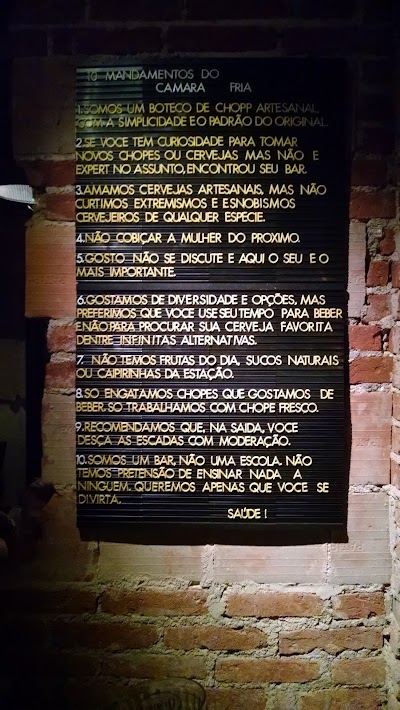 10 MANDAMENTOS DO
CAMARA FRIA
1.SOMOS UM BOTECO DE CHOPP ARTESANAL,
COM A SIMPLICIDADE E O PADRÃO DO ORIGINAL.
2.SE VOCE TEM CURIOSIDADE PARA TOMAR
NOVOS CHOPES OU CERVEJAS MAS NÃO E
EXPERT NO ASSUNTO, ENCONTROU SEU BAR.
3.AMAMOS CERVEJAS ARTESANAIS, MAS NÃO
CURTIMOS EXTREMISMOS E ESNOBISMOS
CERVEJEIROS DE QUALQUER ESPECIE.
4.NÃO COBIÇAR A MULHER DO PROXIMO.
5.GOSTO NÃO SE DISCUTE E AQUI O SEU E O
MAIS IMPORTANTE.
6.GOSTAMOS DE DIVERSIDADE E OPÇÕES, MAS
PREFERIMOS QUE VOCE USE SEU TEMPO PARA BEBER
E NÃO PARA PROCURAR SUA CERVEJA FAVORITA
DENTRE INFINITAS ALTERNATIVAS.
7 NÃO TEMOS FRUTAS DO DIA, SUCOS NATURAIS
OU CAIPIRINHAS DA ESTAÇÃO.
8.SO ENGATAMOS CHOPES QUE GOSTAMOS DE
BEBER. SO TRABALHAMOS COM CHOPE FRESCO.
9.RECOMENDAMOS QUE, NA SAIDA, VOCE
DESÇA AS ESCADAS COM MODERAÇÃO.
10.SOMOS UM BAR, NÃO UMA ESCOLA. NÃO
TEMOS PRETENSÃO DE ENSINAR NADA A
NINGUEM. QUEREMOS APENAS QUE VOCE SE
DIVIRTA.
SAÚDE !